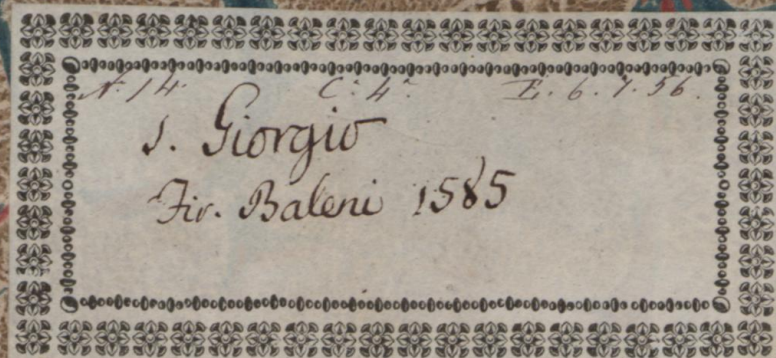 N. 14. C. 4. E. 6. 7. 56.
S. Giorgio
Fir. Baleni 1585